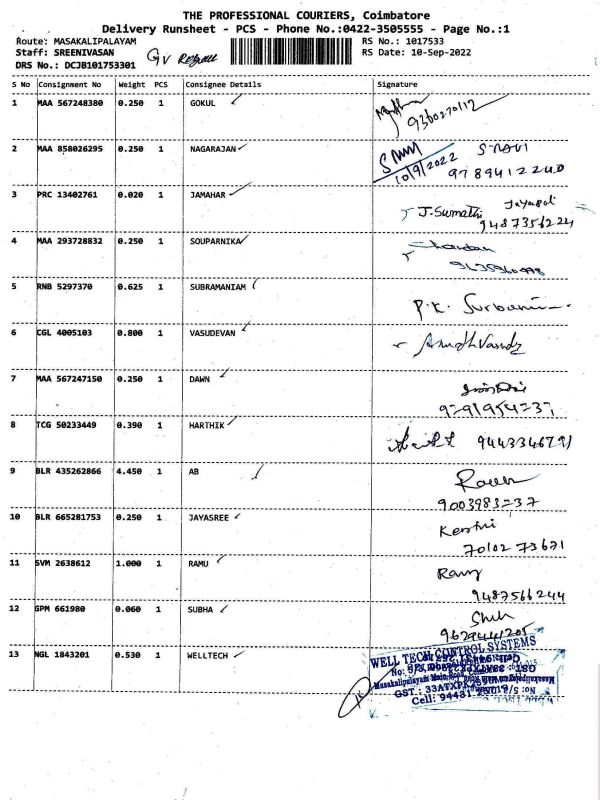 THE PROFESSIONAL COURIERS, Coimbatore
Delivery Runsheet - PCS - Phone No.:0422-3505555 - Page No.:1
Route: MASAKALIPALAYAM RS No.: 1017533
Staff: SREENIVASAN GV RS Date: 10-Sep-2022
DRS No.: DCJB101753301
S No Consignment No Weight PCS Consignee Details Signature
1 MAA 567248380 0.250 1 GOKUL
9360270112
2 MAA 858026295 0.250 1 NAGARAJAN
10/9/2022 9789412240
3 PRC 13402761 0.020 1 JAMAHAR
J. Sumathi 9487356224
4 MAA 293728832 0.250 1 SOUPARNIKA
5 RNB 5297370 0.625 1 SUBRAMANIAM
P.K.
6 CGL 4005103 0.800 1 VASUDEVAN
7 MAA 567247150 0.250 1 DAWN
8 TCG 50233449 0.390 1 HARTHIK
9443346791
9 BLR 435262866 4.450 1 AB
9003983737
10 BLR 665281753 0.250 1 JAYASREE
70102 73671
11 SVM 2638612 1.000 1 RAMU
Ramy
9487566244
12 GPM 661980 0.060 1 SUBHA
9629441205
13 NGL 1843201 0.530 1 WELLTECH
WELL TECH CONTROL SYSTEMS